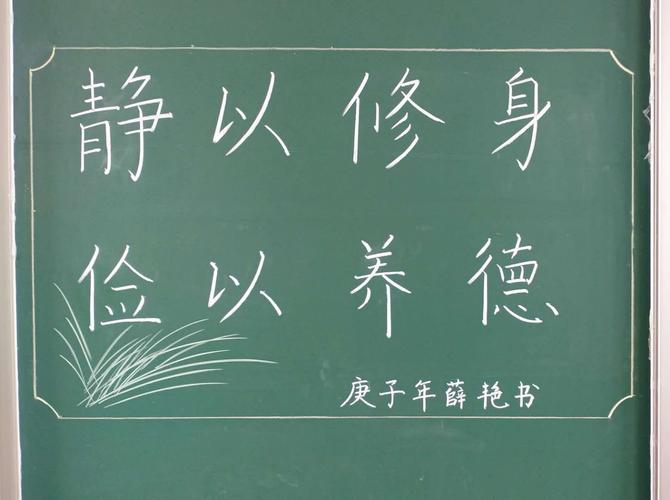 静以修身
俭以养德
庚子年薛艳书